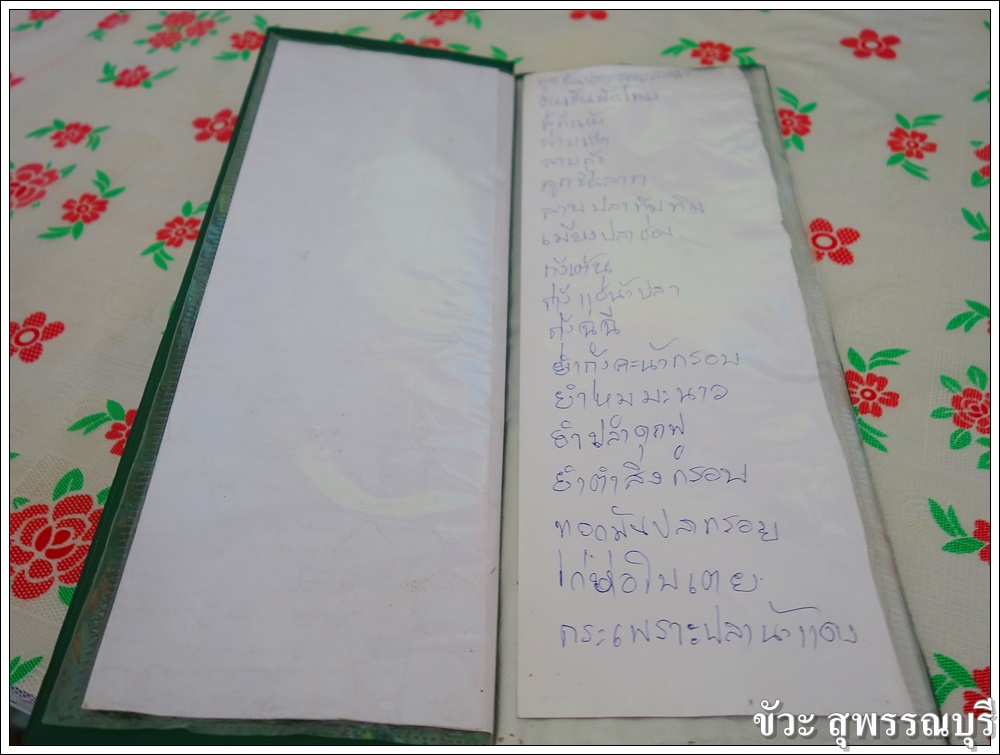 ลาบเป็ด
ลาบกุ้ง
ลาบปลาทับทิม
เมี่ยงปลาช่อน
กุ้งเต้น
กุ้งแช่น้ำปลา
กุ้งฉู่ฉี่
ยำกุ้งคะน้ากรอบ
ยำไหมมะนาว
ยำปลาดุกฟู
ยำตำลึงกรอบ
ทอดมันปลากราย
ไก่ห่อใบเตย
กระเพราะปลาน้ำแดง
ขัวะ สุพรรณบุรี